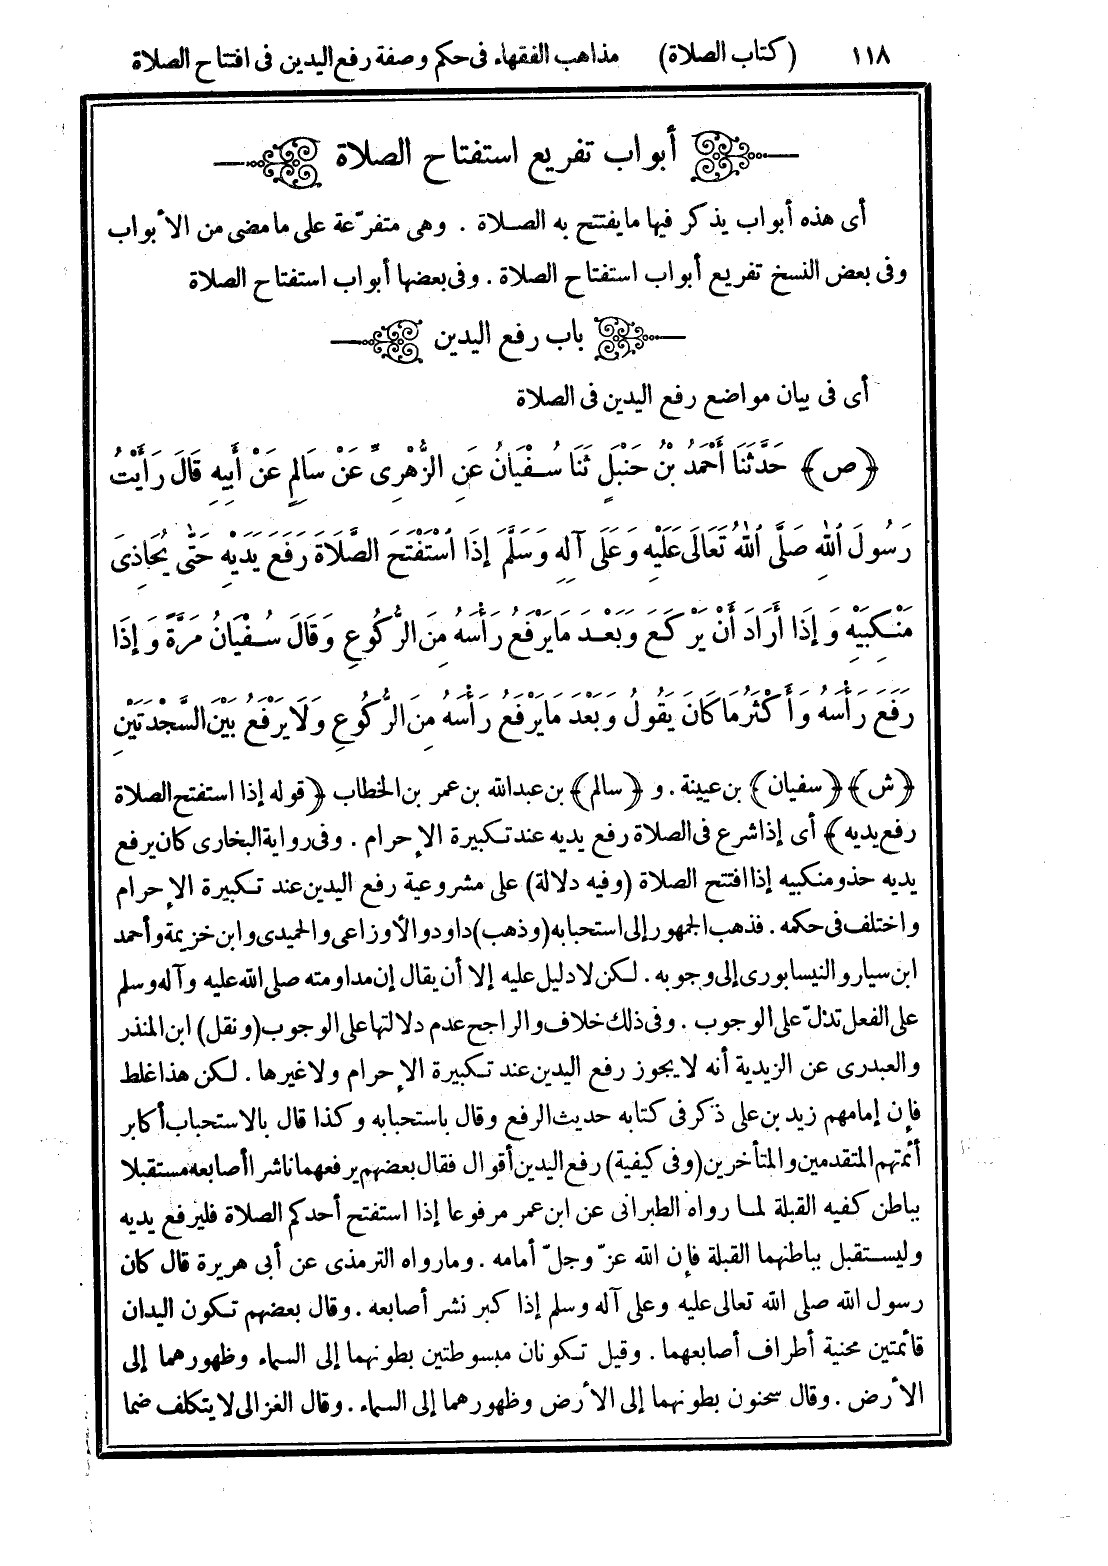 ١١٨ (كتاب الصلاة) مذاهب الفقهاء فى حكم وصفة رفع اليدين فى افتتاح الصلاة
أبواب تفريع استفتاح الصلاة
أى هذه أبواب يذكر فيها ما يفتتح به الصلاة . وهى متفرّعة على ما مضى من الأبواب
وفى بعض النسخ تفريع أبواب استفتاح الصلاة . وفى بعضها أبواب استفتاح الصلاة
باب رفع اليدين
أى فى بيان مواضع رفع اليدين فى الصلاة
﴿ص﴾ حَدَّثَنَا أَحْمَدُ بْنُ حَنْبَلٍ ثَنَا سُفْيَانُ عَنِ الزُّهْرِىِّ عَنْ سَالِمٍ عَنْ أَبِيهِ قَالَ رَأَيْتُ
رَسُولَ اللهِ صَلَّى اللهُ تَعَالَى عَلَيْهِ وَعَلَى آلِهِ وَسَلَّمَ إِذَا اسْتَفْتَحَ الصَّلَاةَ رَفَعَ يَدَيْهِ حَتَّى يُحَاذِىَ
مَنْكِبَيْهِ وَإِذَا أَرَادَ أَنْ يَرْكَعَ وَبَعْدَ مَا يَرْفَعُ رَأْسَهُ مِنَ الرُّكُوعِ وَقَالَ سُفْيَانُ مَرَّةً وَإِذَا
رَفَعَ رَأْسَهُ وَأَكْثَرُ مَا كَانَ يَقُولُ وَبَعْدَ مَا يَرْفَعُ رَأْسَهُ مِنَ الرُّكُوعِ وَلَا يَرْفَعُ بَيْنَ السَّجْدَتَيْنِ
﴿ش﴾ ﴿سفيان﴾ بن عيينة . و ﴿سالم﴾ بن عبدالله بن عمر بن الخطاب ﴿قوله إذا استفتح الصلاة
رفع يديه﴾ أى إذا شرع فى الصلاة رفع يديه عند تكبيرة الإحرام . وفى رواية البخارى كان يرفع
يديه حذو منكبيه إذا افتتح الصلاة (وفيه دلالة) على مشروعية رفع اليدين عند تكبيرة الإحرام
واختلف فى حكمه . فذهب الجمهور إلى استحبابه (وذهب) داود والأوزاعى والحميدى وابن خزيمة وأحمد
ابن سيار والنيسابورى إلى وجوبه . لكن لا دليل عليه إلا أن يقال إن مداومته صلى الله عليه وآله وسلم
على الفعل تدلّ على الوجوب . وفى ذلك خلاف والراجح عدم دلالتها على الوجوب (ونقل) ابن المنذر
والعبدرى عن الزيدية أنه لا يجوز رفع اليدين عند تكبيرة الإحرام ولا غيرها . لكن هذا غلط
فإن إمامهم زيد بن على ذكر فى كتابه حديث الرفع وقال باستحبابه وكذا قال بالاستحباب أكابر
أئمتهم المتقدمين والمتأخرين (وفى كيفية) رفع اليدين أقوال فقال بعضهم يرفعهما ناشرا أصابعه مستقبلا
بباطن كفيه القبلة لما رواه الطبرانى عن ابن عمر مرفوعا إذا استفتح أحدكم الصلاة فليرفع يديه
وليستقبل بباطنهما القبلة فإن الله عزّ وجلّ أمامه . وما رواه الترمذى عن أبى هريرة قال كان
رسول الله صلى الله تعالى عليه وعلى آله وسلم إذا كبر نشر أصابعه . وقال بعضهم تكون اليدان
قائمتين محنية أطراف أصابعهما . وقيل تكونان مبسوطتين بطونهما إلى السماء وظهورهما إلى
الأرض . وقال سحنون بطونهما إلى الأرض وظهورهما إلى السماء . وقال الغزالى لا يتكلف ضما